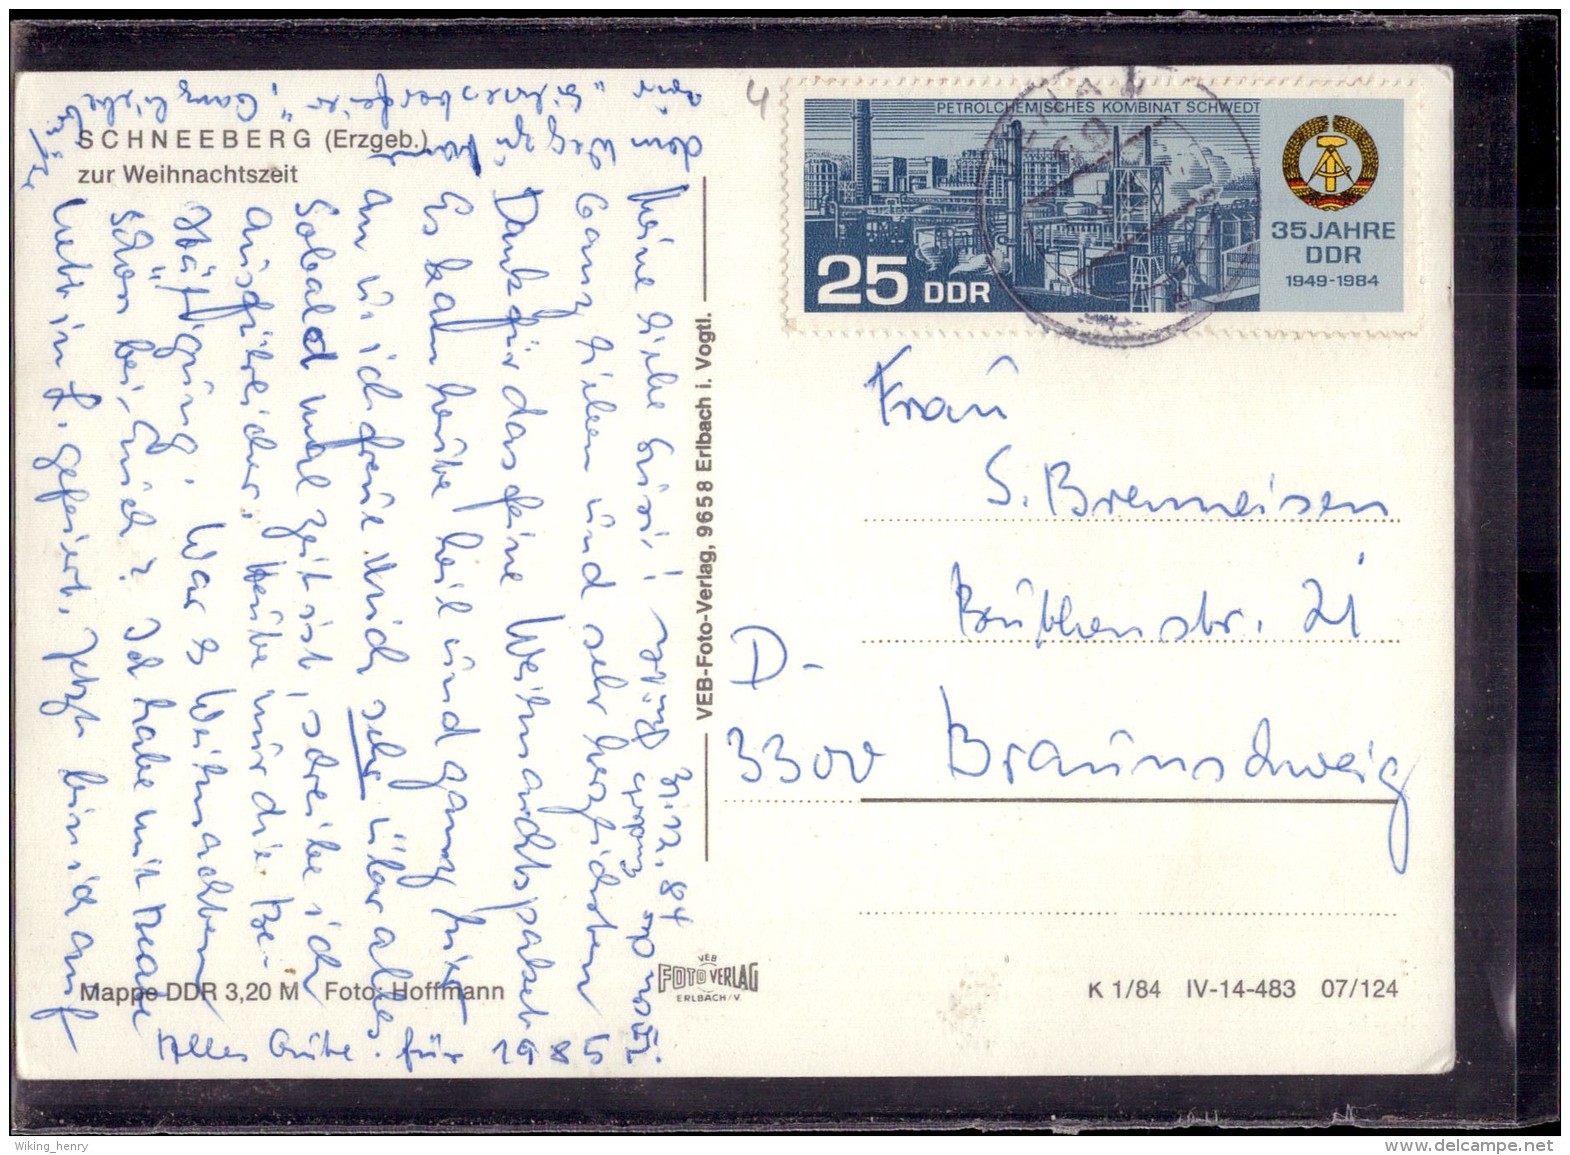 SCHNEEBERG (Erzgeb.)
zur Weihnachtszeit
31.12.84
Meine liebe Gusri!
Ganz lieben und sehr herzlichsten
Dank für das feine Weihnachtspaket
Es kam heute heil und ganz hier
an u. ich freue mich sehr über alles
Sobald mal Zeit ist, schreibe ich
ausführlicher. Heute nur die Be-
stätigung. War es Weihnachten
schön bei Euch? Ich habe mit
in L. gefeiert. Jetzt bin ich auf
dem Weg zu
Alles Gute für 1985
VEB-Foto-Verlag, 9658 Erlbach i. Vogtl.
4
PETROLCHEMISCHES KOMBINAT SCHWEDT
25 DDR
35 JAHRE
DDR
1949-1984
Frau
S. Bremeisen
21
D-
3300 Braunschweig
Mappe DDR 3,20 M Foto: Hoffmann
VEB
FOTO VERLAG
ERLBACH/V.
K 1/84 IV-14-483 07/124
Wiking_henry
www.delcampe.net